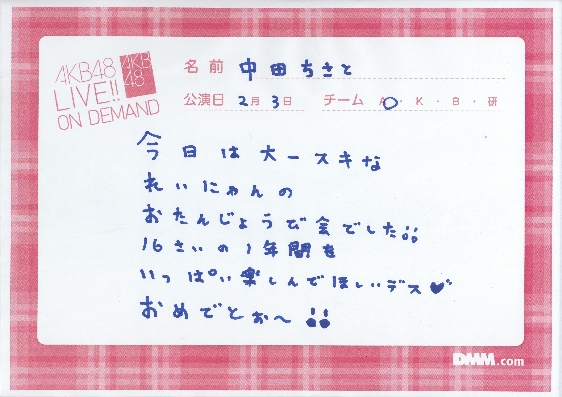 AKB48
LIVE!!
ON DEMAND
AKB
48
名前 中田ちさと
公演日 2月3日 チーム A・K・B・研
今日は大ースキな
れいにゃんの
おたんじょうび会でした
16さいの1年間を
いっぱい楽しんでほしいデス♥
おめでとぉ〜
DMM.com